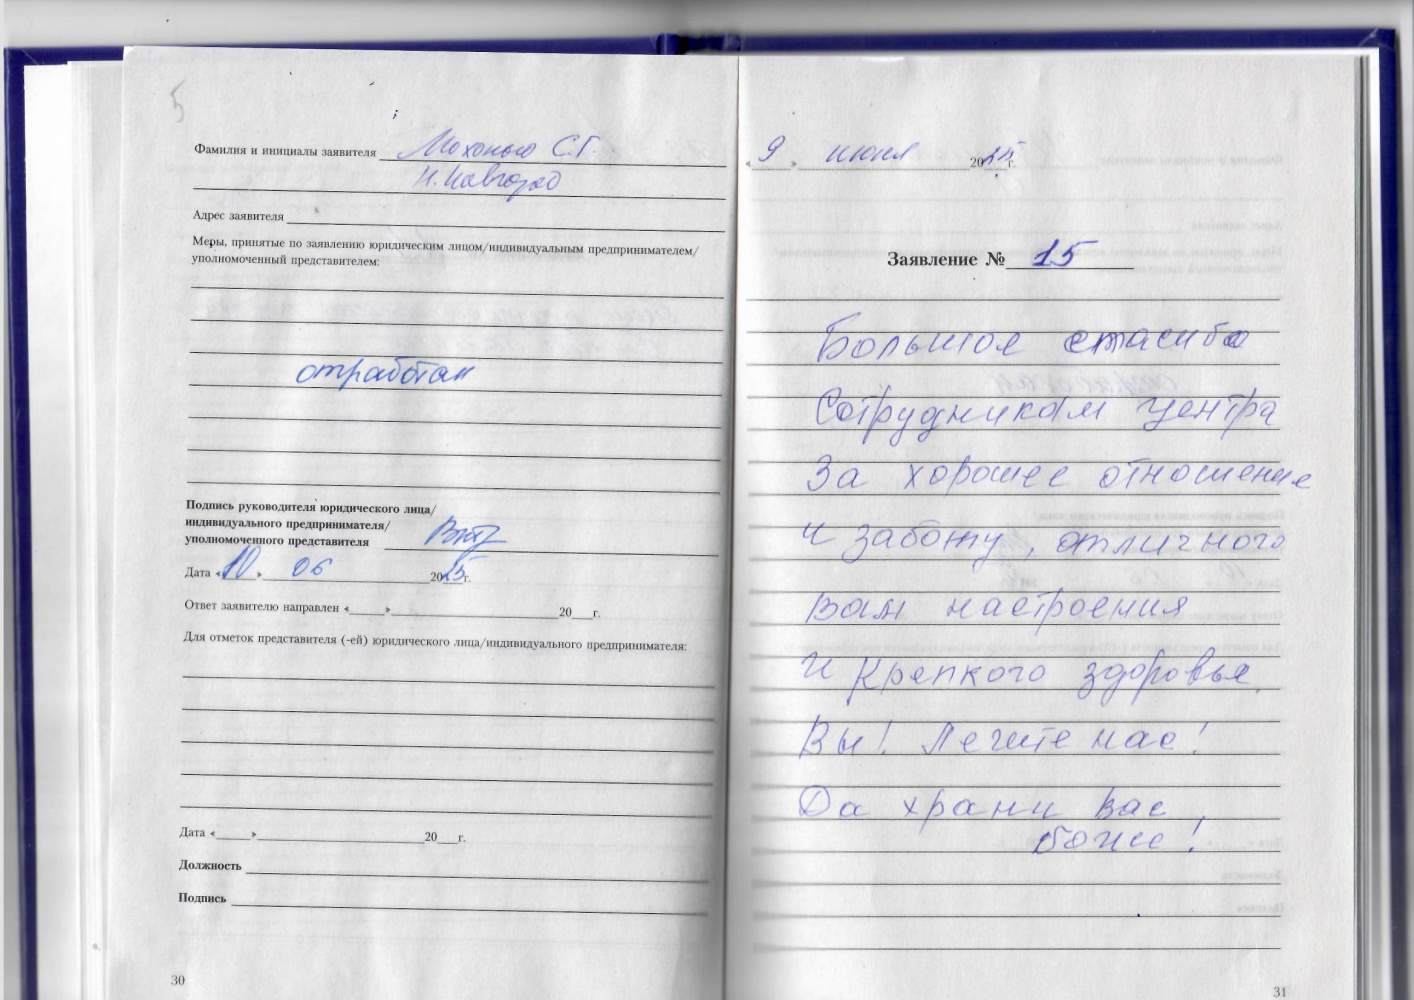 5
Фамилия и инициалы заявителя С.Г.
Н. Новгород
Адрес заявителя
Меры, принятые по заявлению юридическим лицом/индивидуальным предпринимателем/
уполномоченный представителем:
отработан
Подпись руководителя юридического лица/
индивидуального предпринимателя/
уполномоченного представителя
Дата «10» 06 2015г.
Ответ заявителю направлен «___» 20__г.
Для отметок представителя (-ей) юридического лица/индивидуального предпринимателя:
Дата «___» 20__г.
Должность
Подпись
30
«9» июня 2015г.
Заявление № 15
Большое спасибо
Сотрудникам центра
За хорошее отношение
и заботу, отличного
вам настроения
и крепкого здоровья.
Вы! Лечите нас!
Да храни вас
боже!
31